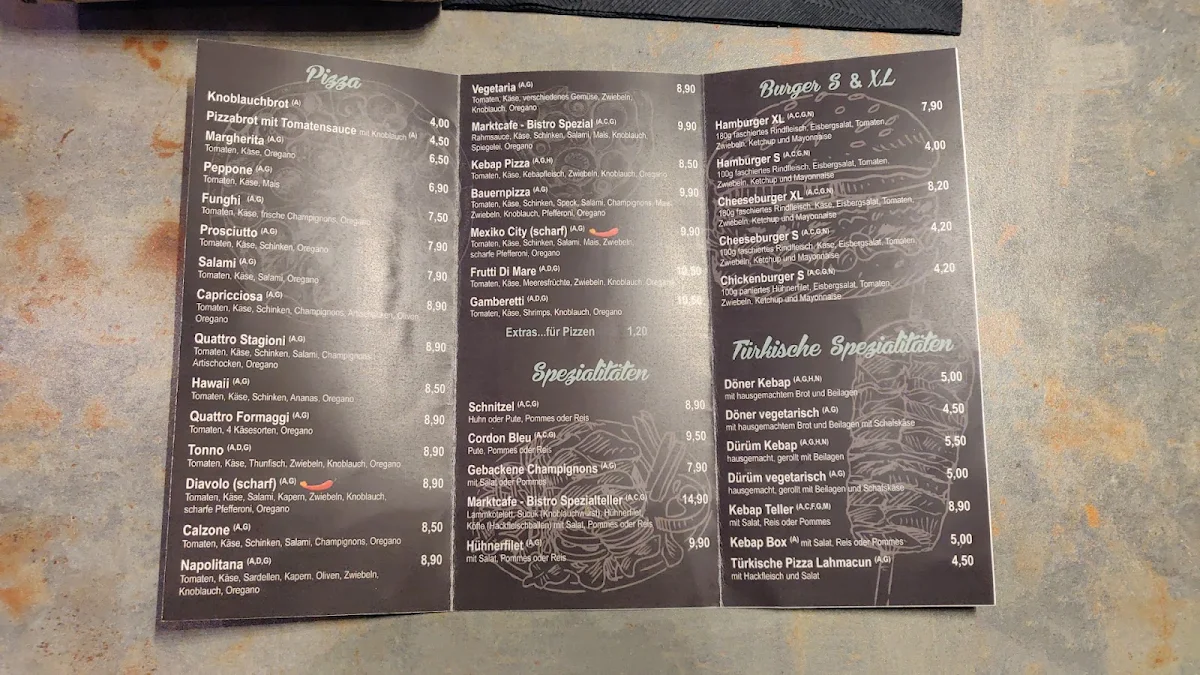 Pizza
Knoblauchbrot (A) 4,00
Pizzabrot mit Tomatensauce mit Knoblauch (A) 4,50
Margherita (A,G) 6,50
Tomaten, Käse, Oregano
Peppone (A,G) 6,90
Tomaten, Käse, Mais
Funghi (A,G) 7,50
Tomaten, Käse, frische Champignons, Oregano
Prosciutto (A,G) 7,90
Tomaten, Käse, Schinken, Oregano
Salami (A,G) 7,90
Tomaten, Käse, Salami, Oregano
Capricciosa (A,G) 8,90
Tomaten, Käse, Schinken, Champignons, Artischocken, Oliven,
Oregano
Quattro Stagioni (A,G) 8,90
Tomaten, Käse, Schinken, Salami, Champignons,
Artischocken, Oregano
Hawaii (A,G) 8,50
Tomaten, Käse, Schinken, Ananas, Oregano
Quattro Formaggi (A,G) 8,90
Tomaten, 4 Käsesorten, Oregano
Tonno (A,D,G) 8,90
Tomaten, Käse, Thunfisch, Zwiebeln, Knoblauch, Oregano
Diavolo (scharf) (A,G) 8,90
Tomaten, Käse, Salami, Kapern, Zwiebeln, Knoblauch,
scharfe Pfefferoni, Oregano
Calzone (A,G) 8,50
Tomaten, Käse, Schinken, Salami, Champignons, Oregano
Napolitana (A,D,G) 8,90
Tomaten, Käse, Sardellen, Kapern, Oliven, Zwiebeln,
Knoblauch, Oregano
Vegetaria (A,G) 8,90
Tomaten, Käse, verschiedenes Gemüse, Zwiebeln,
Knoblauch, Oregano
Marktcafe - Bistro Spezial (A,C,G) 9,90
Rahmsauce, Käse, Schinken, Salami, Mais, Knoblauch,
Spiegelei, Oregano
Kebap Pizza (A,G,H) 8,50
Tomaten, Käse, Kebapfleisch, Zwiebeln, Knoblauch, Oregano
Bauernpizza (A,G) 9,90
Tomaten, Käse, Schinken, Speck, Salami, Champignons, Mais,
Zwiebeln, Knoblauch, Pfefferoni, Oregano
Mexiko City (scharf) (A,G) 9,90
Tomaten, Käse, Schinken, Salami, Mais, Zwiebeln,
scharfe Pfefferoni, Oregano
Frutti Di Mare (A,D,G) 10,50
Tomaten, Käse, Meeresfrüchte, Zwiebeln, Knoblauch, Oregano
Gamberetti (A,D,G) 10,50
Tomaten, Käse, Shrimps, Knoblauch, Oregano
Extras...für Pizzen 1,20
Spezialitäten
Schnitzel (A,C,G) 8,90
Huhn oder Pute, Pommes oder Reis
Cordon Bleu (A,C,G) 9,50
Pute, Pommes oder Reis
Gebackene Champignons (A,G) 7,90
mit Salat oder Pommes
Marktcafe - Bistro Spezialteller (A,C,G) 14,90
Lammkotelett, Sucuk (Knoblauchwurst), Hühnerfilet,
Köfte (Hackfleischballen) mit Salat, Pommes oder Reis
Hühnerfilet (A,G) 9,90
mit Salat, Pommes oder Reis
Burger S & XL
Hamburger XL (A,C,G,N) 7,90
180g faschiertes Rindfleisch, Eisbergsalat, Tomaten,
Zwiebeln, Ketchup und Mayonnaise
Hamburger S (A,C,G,N) 4,00
100g faschiertes Rindfleisch, Eisbergsalat, Tomaten,
Zwiebeln, Ketchup und Mayonnaise
Cheeseburger XL (A,C,G,N) 8,20
180g faschiertes Rindfleisch, Käse, Eisbergsalat, Tomaten,
Zwiebeln, Ketchup und Mayonnaise
Cheeseburger S (A,C,G,N) 4,20
100g faschiertes Rindfleisch, Käse, Eisbergsalat, Tomaten,
Zwiebeln, Ketchup und Mayonnaise
Chickenburger S (A,C,G,N) 4,20
100g paniertes Hühnerfilet, Eisbergsalat, Tomaten,
Zwiebeln, Ketchup und Mayonnaise
Türkische Spezialitäten
Döner Kebap (A,G,H,N) 5,00
mit hausgemachtem Brot und Beilagen
Döner vegetarisch (A,G) 4,50
mit hausgemachtem Brot und Beilagen mit Schafskäse
Dürüm Kebap (A,G,H,N) 5,50
hausgemacht, gerollt mit Beilagen
Dürüm vegetarisch (A,G) 5,00
hausgemacht, gerollt mit Beilagen und Schafskäse
Kebap Teller (A,C,F,G,M) 8,90
mit Salat, Reis oder Pommes
Kebap Box (A) mit Salat, Reis oder Pommes 5,00
Türkische Pizza Lahmacun (A,G) 4,50
mit Hackfleisch und Salat